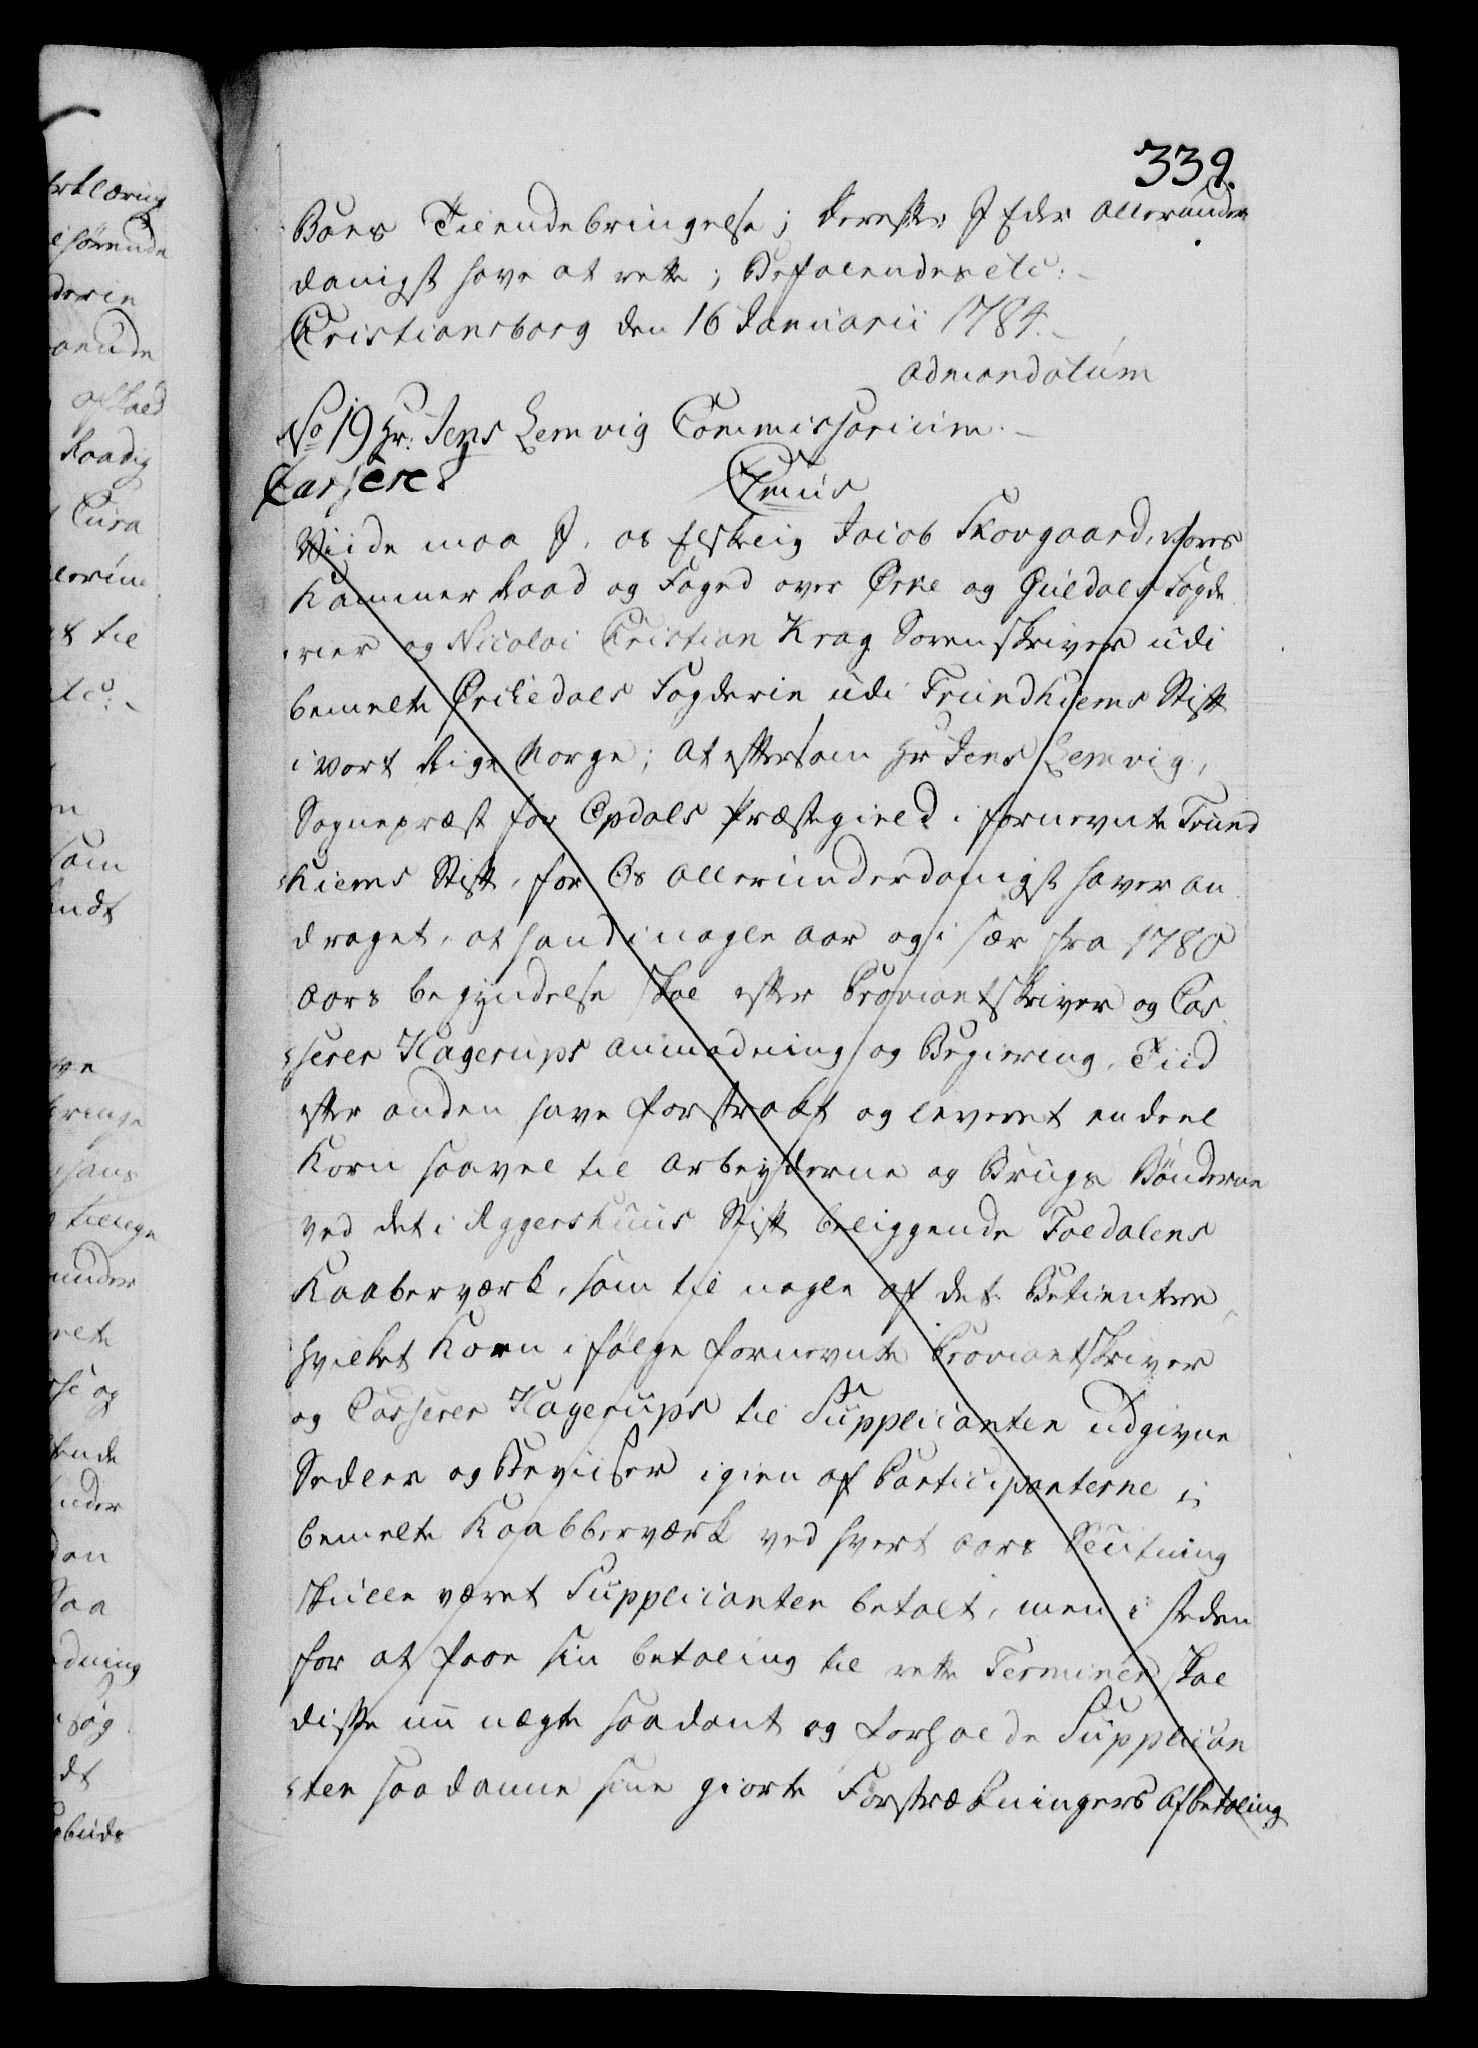 339.
Boes Tilendebringelse; derefter I Eder allerunder
danigst have at rette; Befalendes etc:
Christiansborg den 16 Januarii 1784.
admandatum
No 19 Hr: Jens Lemvig Commissorium.
Casseres
Cmus
Viide maa I, os elskelig Jacob Skovgaard, Vores
Kammer Raad og Foged over Örke og Guldals Fogde
rier og Nicolai Cristian Krag Sorenskriver udi
bemelte Örkedals Fogderie udi Trundhiems Stift
i vort Rige Norge; At eftersom Hr Jens Lemvig,
Sognepræst for Opdals Præstegield i fornevnte Trund
hiems Stift, for Os allerunderdanigst haver an
draget, at hand i nogle Aar og i sær fra 1780
Aars begyndelse skal efter Proviantskriver og Cas
serer Hagerups Anmodning og Begiering, Tiid
efter anden have forstrakt og leveret en deel
Korn saavel til Arbeyderne og Brugs Bönderne
ved det i Aggershuus Stift beliggende Foldalens
Kaaberværk, som til nogle af dets Betientere,
hvilket Korn i fölge fornevnte Proviantskriver
og Casserer Hagerups til Supplicanten udgivne
Sedler og Beviiser igien af Participanterne i
bemelte Kaabberværk ved hvert Aars Slutning
skulle været Supplicanten betalt, men i steden
for at faae sin betaling til rette Terminer skal
disse nu nægte saadant og forholde Supplican
ten saadanne sine giorte Forstrækningers Afbetaling